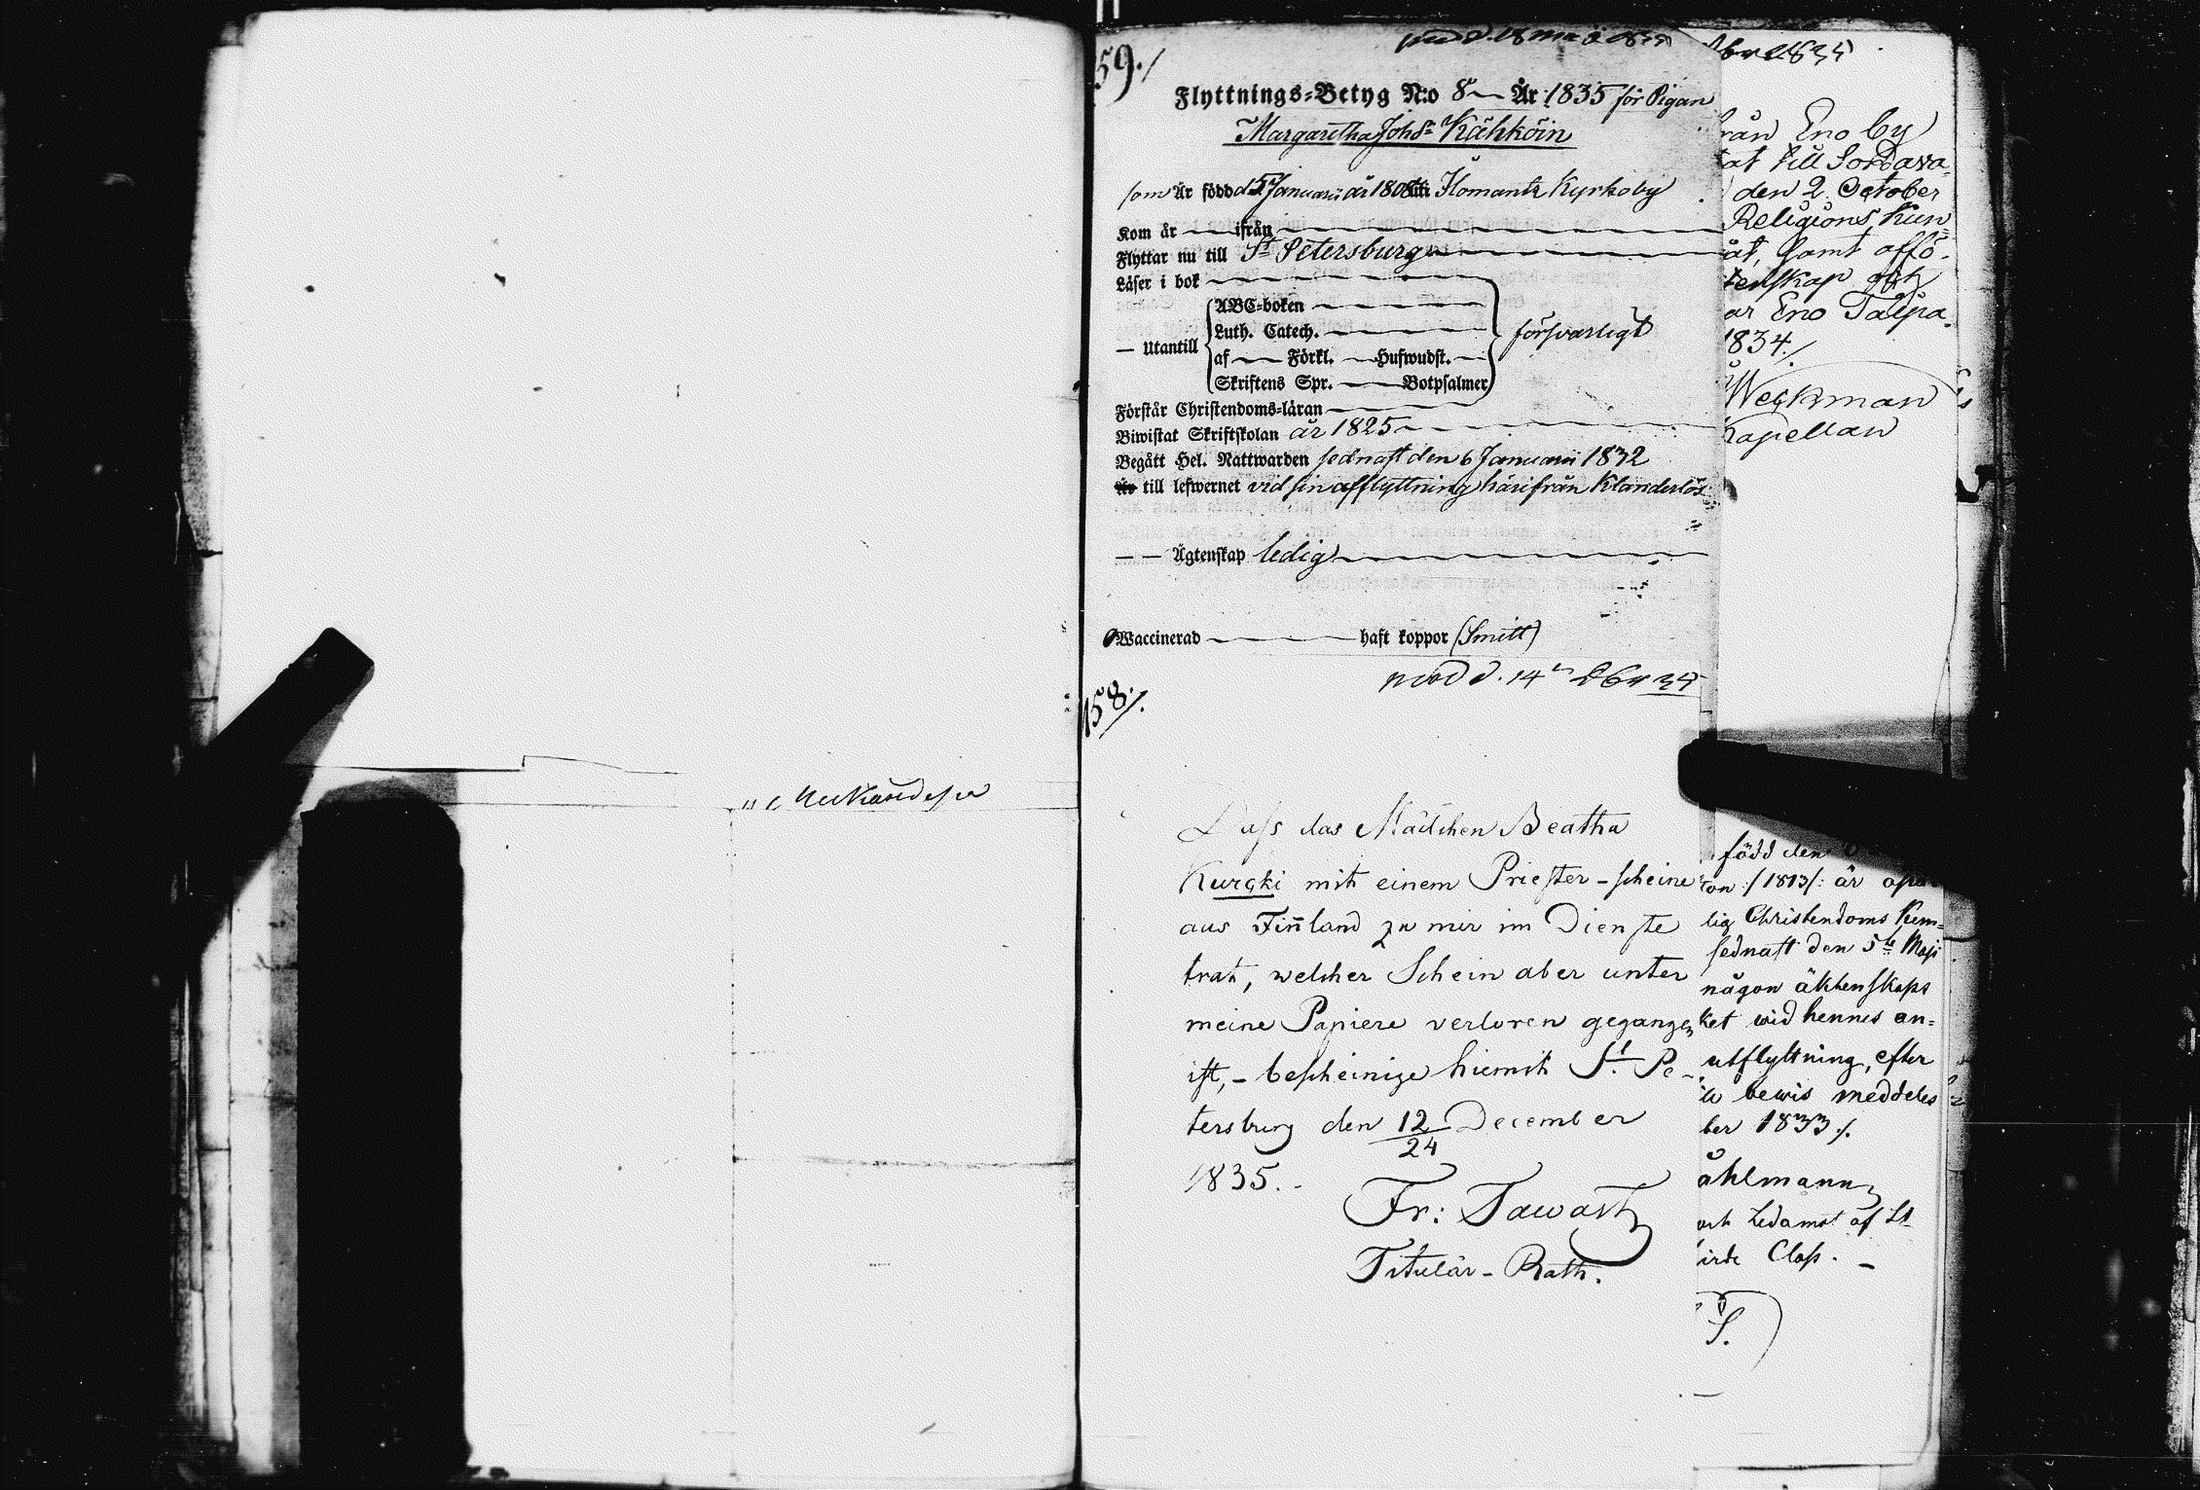 59./
Flyttnings-Betyg N:o 8 År 1835 för Pigan
Margaretha Johsr Kähköin
som Är född d 5 Januarii år 1808 Ilomants Kyrkoby
Kom år ifrån
Flyttar nu till St Petersburg
Läser i bok
ABC-boken
Luth. Catech.
— Utantill försvarligt
af Förkl. Hufwudst.
Skriftens Spr. Botpsalmer
Förstår Christendoms-läran
Biwistat Skriftskolan år 1825
Begått Hel. Nattwarden sednast den 6 Januarii 1832
till lefwernet vid sin afflyttning härifrån Klanderlös
— — Ägtenskap ledig
Waccinerad haft koppor (Smitt)
d. 14
158./.
Dass das Mädchen Beatha
Kurcki mit einem Priester-scheine
aus Finnland zu mir im Dienste
trat, welcher Schein aber unter
meine Papiere verloren gegangen
ist, – bescheinige hiemit St. Pe-
tersburg den 12/24 December
1835.
Fr: Tawast
Titulär-Rath.
från Eno by
at till Sordava-
den 2. October
Religions kun
åt, samt
tenskap och
ar Eno
1834./.
Weckman
Kapellan
född den
ton /1813/: är
lig Christendoms Kun-
sednast den 5te Maji
någon äktenskaps
ket wid hennes an-
utflyttning, efter
bewis meddeles
ber 1833./.
åhlmann
och Ledamot af St
irde Class. –
S.